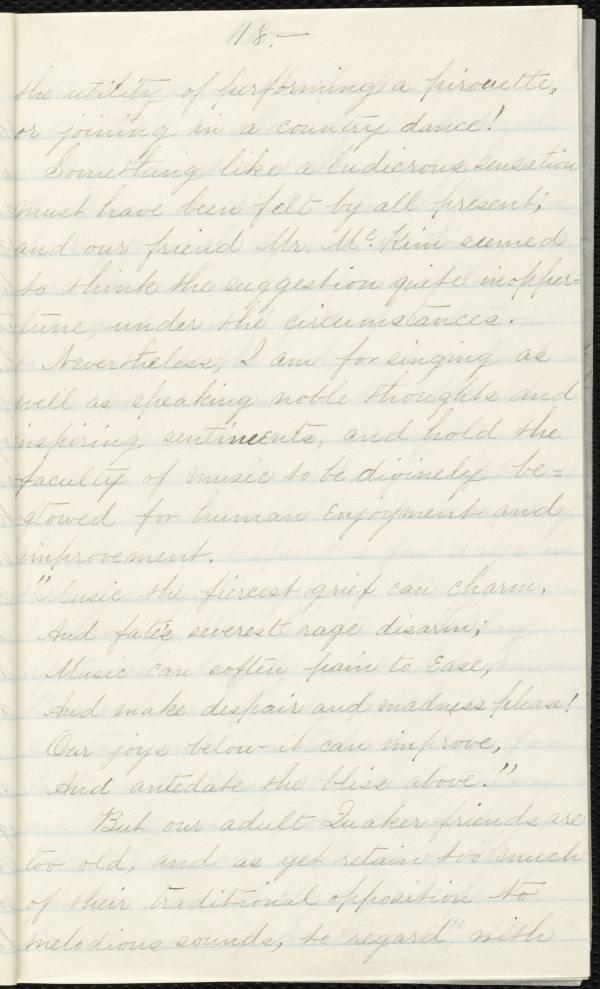 118.—
the utility of performing a pirouette,
or joining in a country dance!
Something like a ludicrous sensation
must have been felt by all present;
and our friend Mr. Mc. Kim seemed
to think the suggestion quite inopper=
tune, under the circumstances.
Nevertheless, I am for singing as
well as speaking noble thoughts and
inspiring sentiments, and hold the
faculty of music to be divinely be=
stowed for human enjoyment and
improvement.
"Music the fiercest grief can charm,
And fate's severest rage disarm;
Music can soften pain to ease,
And make despair and madness please!
Our joys below it can improve,
And antedate the bliss above."
But our adult Quaker friends are
too old, and as yet retain too much
of their traditional opposition to
melodious sounds, to regard with